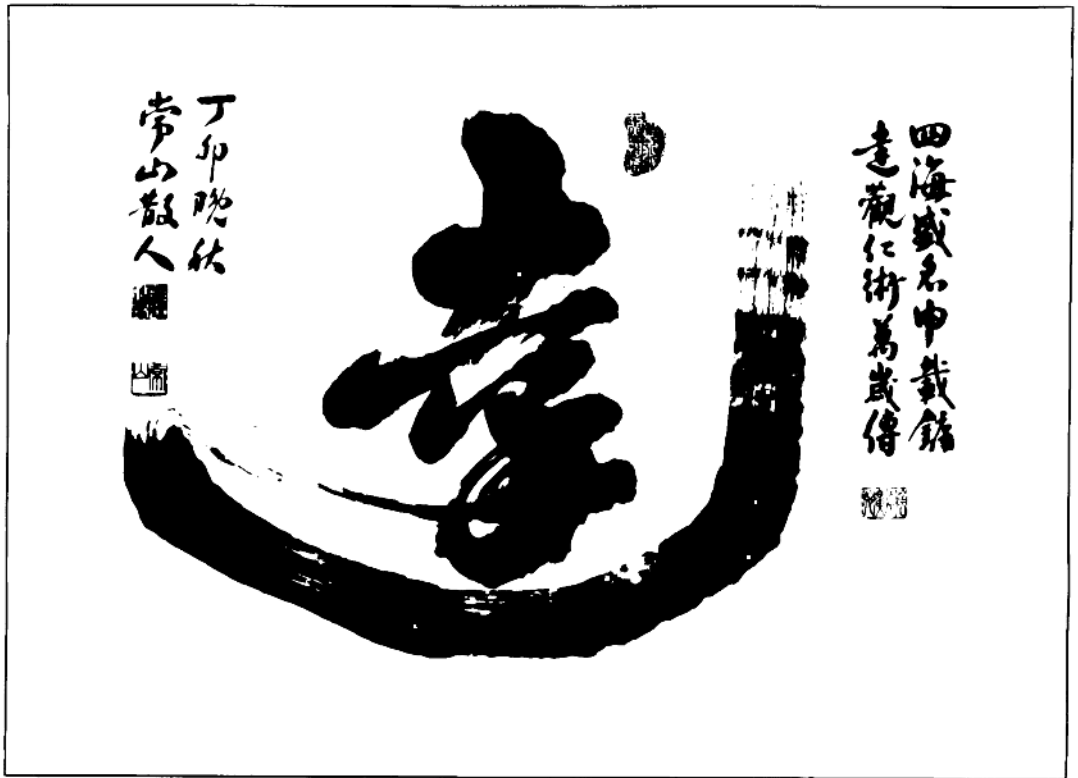 四海盛名中載錄
達觀仁術萬歲傳
達
丁卯晚秋
常山散人